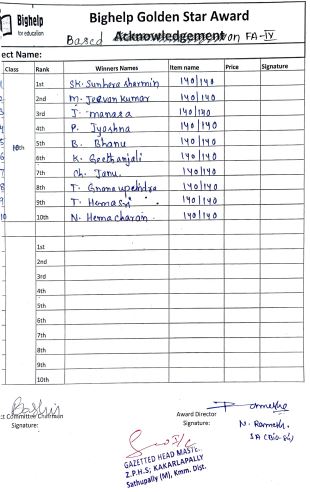 Bighelp Golden Star Award
Bighelp
for education
Based Acknowledgement on FA-IV
ect Name:
Class Rank Winners Names Item name Price Signature
1 1st SK. Sunhera sharmin 140/140
2 2nd M. Jeevan kumar 140/140
3 3rd J. manasa 140/140
4 4th P. Jyoshna 140/140
10th 5th B. Bhanu 140/140
6 6th K. Geethanjali 140/140
7 7th Ch. Janu. 140/140
8 8th T. Gnana upendra 140/140
9 9th T. Hemasri 140/140
10 10th N. Hema charan. 140/140
1st
2nd
3rd
4th
5th
6th
7th
8th
9th
10th
ct Committee Chairman
Signature:
Award Director
Signature:
N. Ramesh.
SA (Bio-Sc)
GAZETTED HEAD MASTE
Z.P.H.S; KAKARLAPALLY
Sathupally (M), Kmm. Dist.